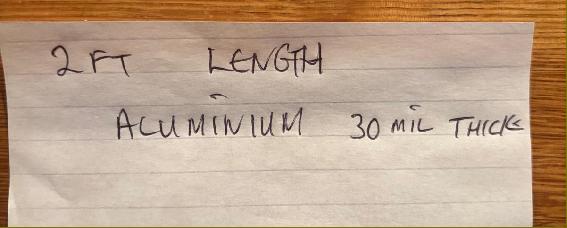 2 FT LENGTH
ALUMINIUM 30 MIL THICK